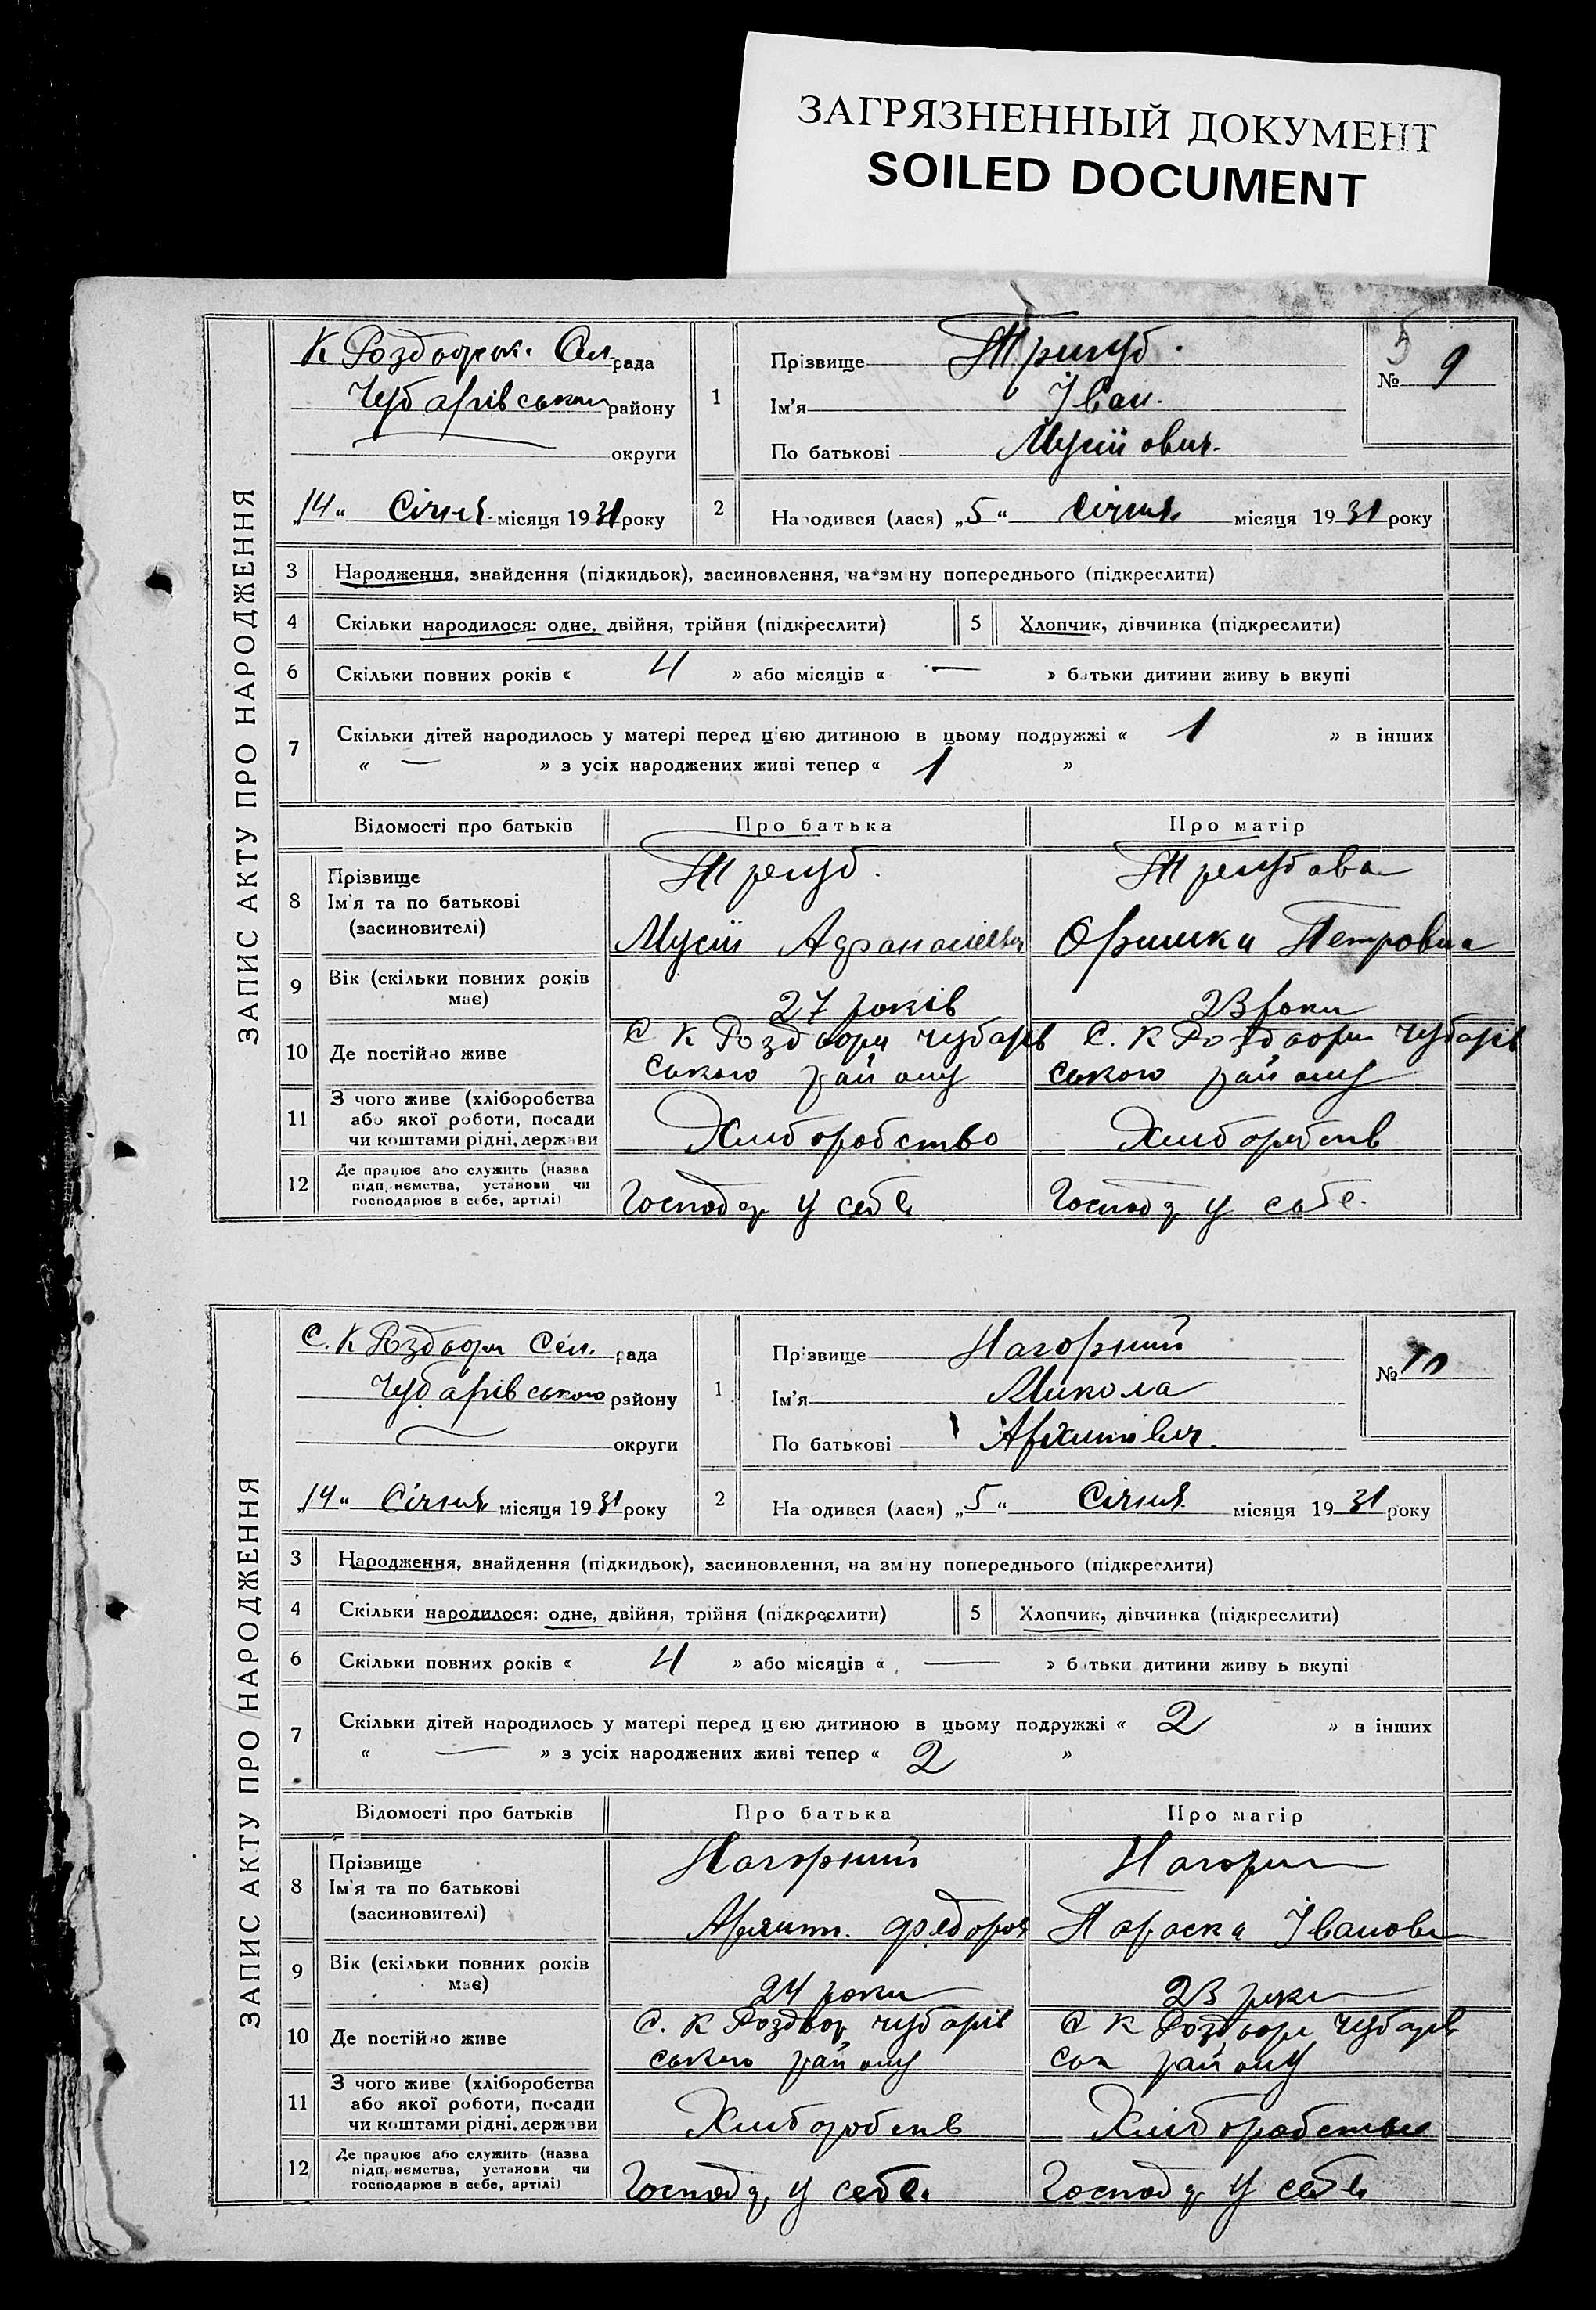 ЗАГРЯЗНЕННЫЙ ДОКУМЕНТ
SOILED DOCUMENT
ЗАПИС АКТУ ПРО НАРОДЖЕННЯ
К Роздорск. Сел. рада
Чубарівського району
округи
„14“ Січня місяця 1931 року
1
Прізвище Тригуб.
Ім'я Іван.
По батькові Мусійович.
5
№ 9
2
Народився (лася) „5“ Січня місяця 1931 року
3 Народження, знайдення (підкидьок), засиновлення, на зміну попереднього (підкреслити)
4 Скільки народилося: одне, двійня, трійня (підкреслити) 5 Хлопчик, дівчинка (підкреслити)
6 Скільки повних років « 4 » або місяців « — » батьки дитини живу ь вкупі
7 Скільки дітей народилось у матері перед цією дитиною в цьому подружжі « 1 » в інших
« — » з усіх народжених живі тепер « 1 »
Відомості про батьків Про батька Про матір
8 Прізвище
Ім'я та по батькові
(засиновителі)
Тригуб. Тригубова
Мусій Афанасієвич Оришка Петровна
9 Вік (скільки повних років має)
27 років 23 роки
10 Де постійно живе
С К Роздори Чубарів С. К Роздори Чубарів
ського району ського району
11 З чого живе (хліборобства
або якої роботи, посади
чи коштами рідні, держави
Хліборобство Хліборобств
12 Де працює або служить (назва
підприємства, установи чи
господарює в себе, артілі)
Господар у себе Господ у себе.
ЗАПИС АКТУ ПРО НАРОДЖЕННЯ
С. К Роздори Сел. рада
Чубарівського району
округи
„14“ Січня місяця 1931 року
1
Прізвище Нагорний
Ім'я Микола
По батькові
№ 10
2
На одився (лася) „5“ Січня місяця 1931 року
3 Народження, знайдення (підкидьок), засиновлення, на зміну попереднього (підкреслити)
4 Скільки народилося: одне, двійня, трійня (підкреслити) 5 Хлопчик, дівчинка (підкреслити)
6 Скільки повних років « 4 » або місяців « — » батьки дитини живу ь вкупі
7 Скільки дітей народилось у матері перед цією дитиною в цьому подружжі « 2 » в інших
« — » з усіх народжених живі тепер « 2 »
Відомості про батьків Про батька Про матір
8 Прізвище
Ім'я та по батькові
(засиновителі)
Нагорний Нагорна
Федоров Параска Іванова
9 Вік (скільки повних років має)
24 роки 23 роки
10 Де постійно живе
С. К Роздор Чубарів С К Роздори Чубарів
ського району ськ району
11 З чого живе (хліборобства
або якої роботи, посади
чи коштами рідні, держави
Хліборобств Хліборобство
12 Де працює або служить (назва
підприємства, установи чи
господарює в себе, артілі)
Господ у себе. Господ у себе